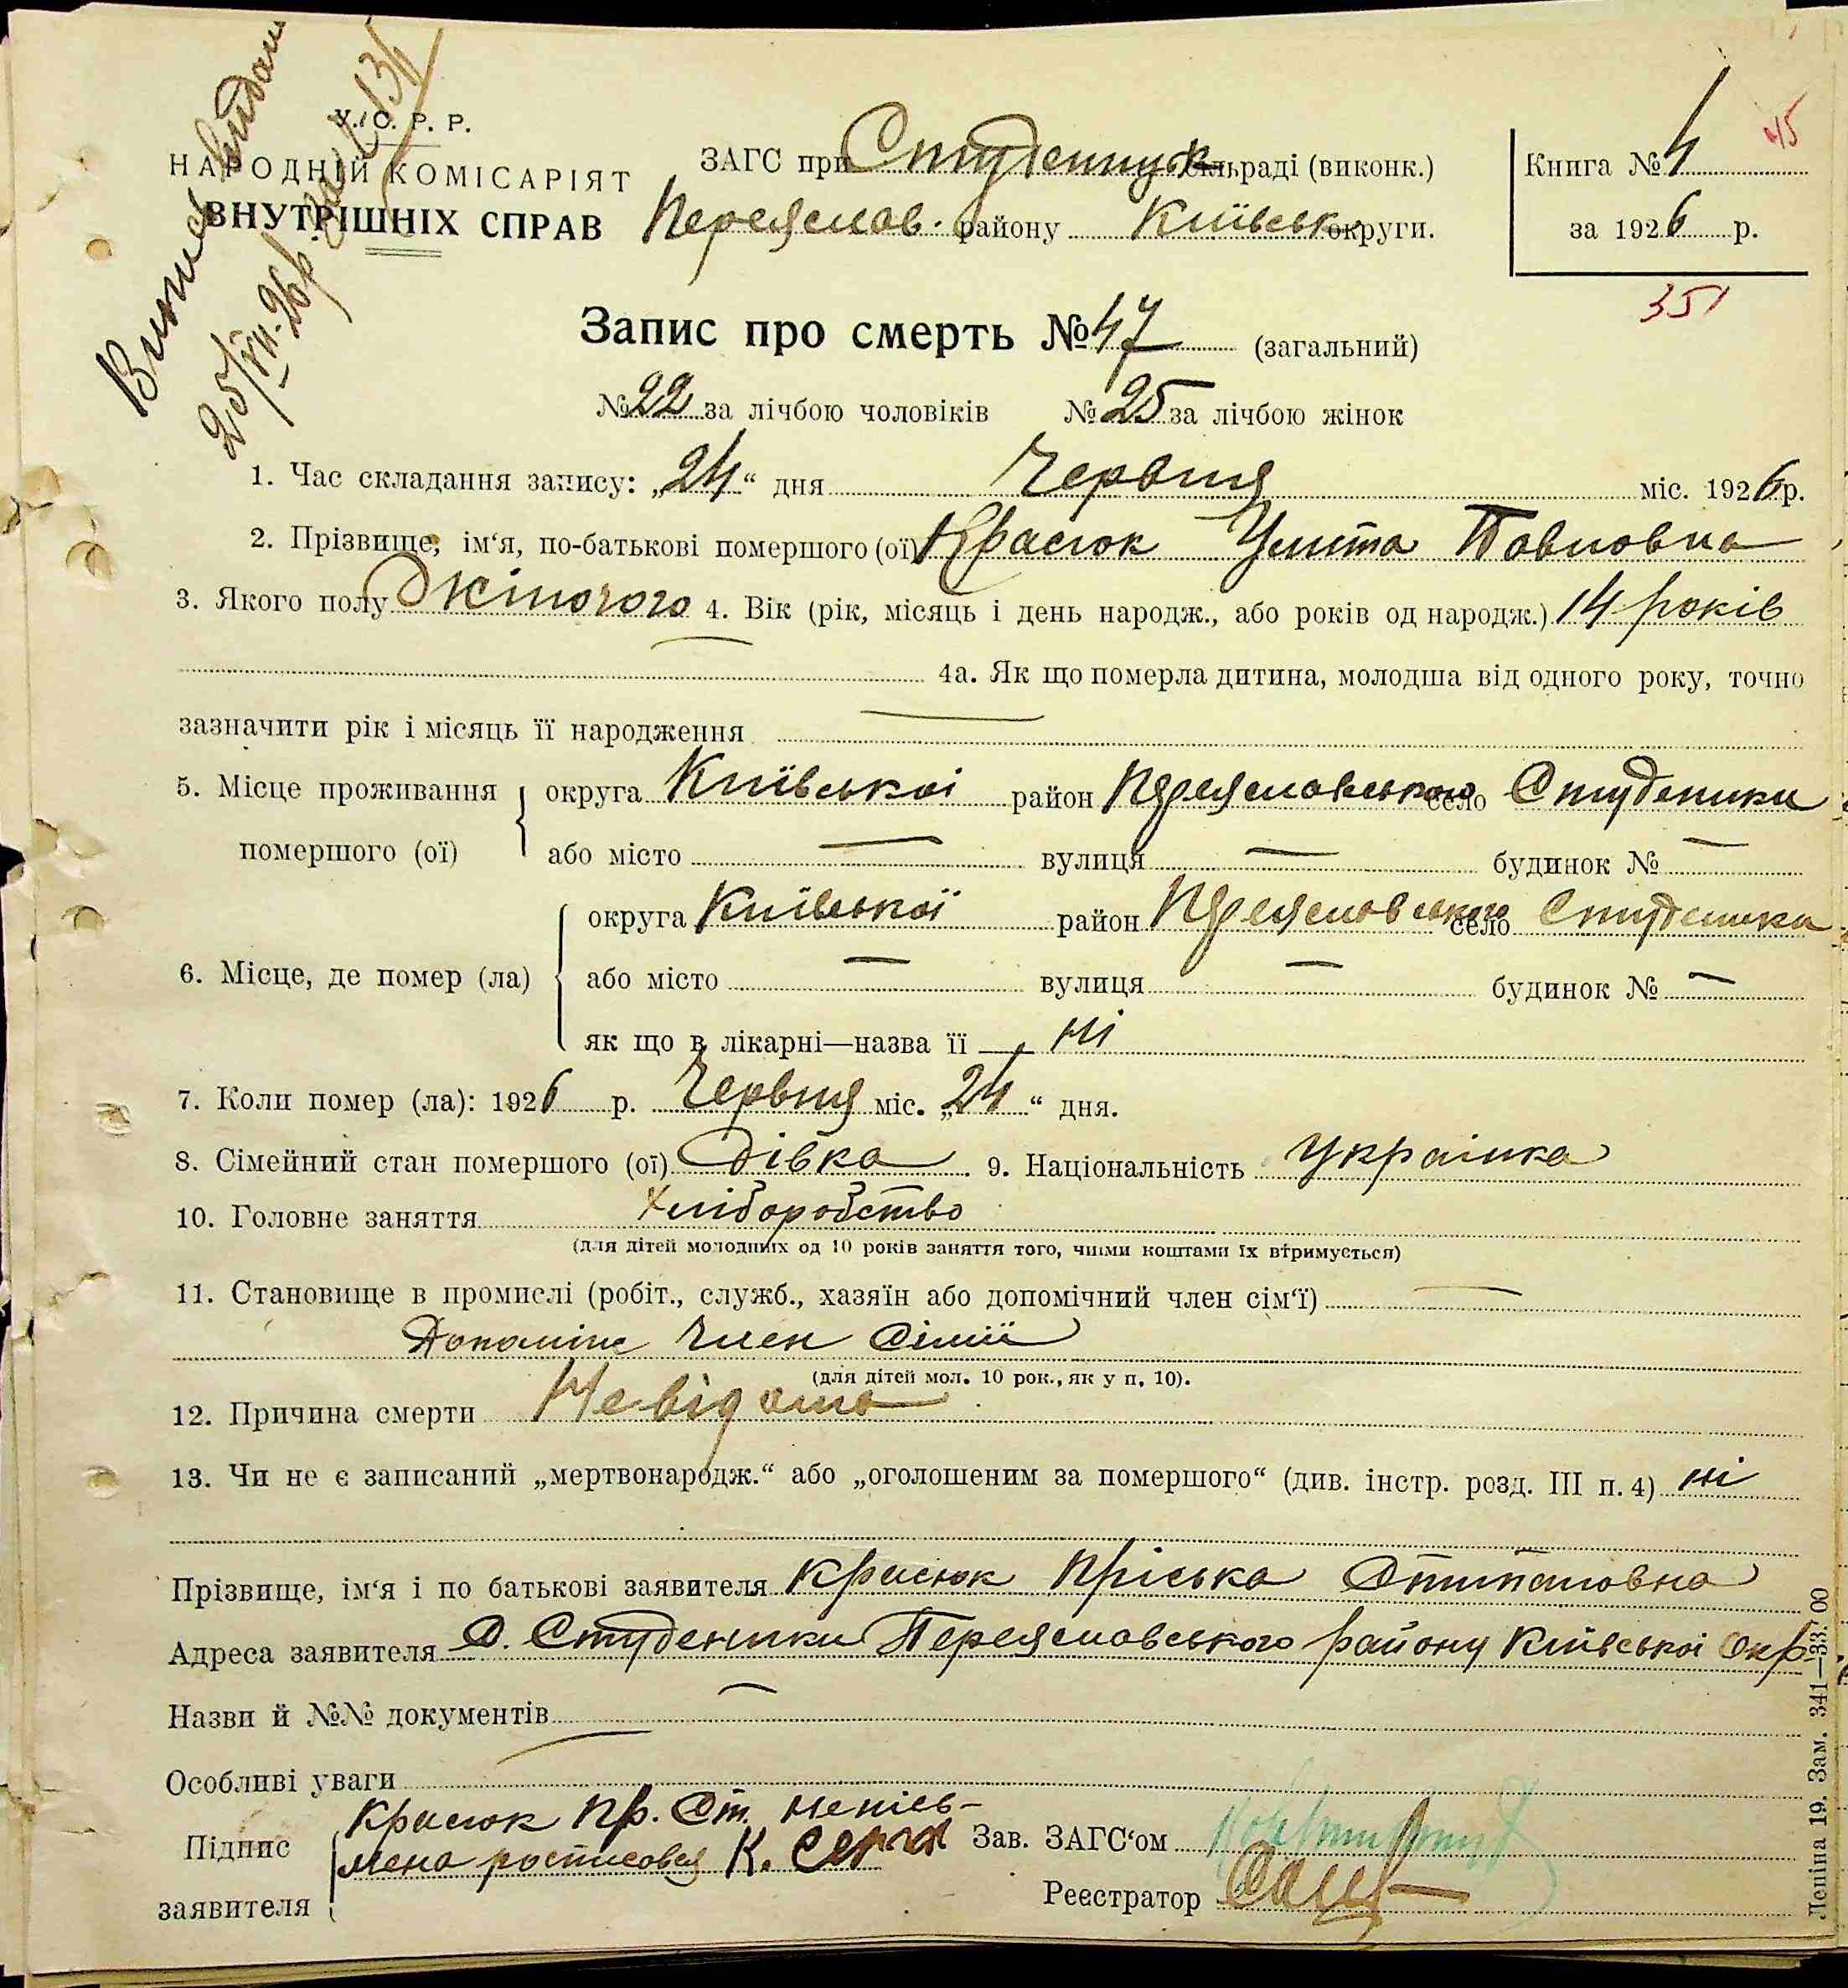 Витяг видан
25/VII-26р.
45
У. С. Р. Р.
НАРОДНІЙ КОМІСАРІЯТ
ВНУТРІШНІХ СПРАВ
ЗАГС при Студениц. сільраді (виконк.)
Переяслав. району Київськ округи.
Книга № 4
за 1926 р.
351
Запис про смерть № 47 (загальний)
№ 22 за лічбою чоловіків № 25 за лічбою жінок
1. Час складання запису: „24“ дня Червня міс. 1926 р.
2. Прізвище, ім‘я, по-батькові помершого (ої) Красюк Улита Павловна
3. Якого полу жіночого 4. Вік (рік, місяць і день народж., або років од народж.) 14 років
4а. Як що померла дитина, молодша від одного року, точно
зазначити рік і місяць її народження —
5. Місце проживання помершого (ої) округа Київської район Переяславського село Студеники
або місто — вулиця — будинок № —
6. Місце, де помер (ла) округа Київської район Переяславського село Студеники
або місто — вулиця — будинок № —
як що в лікарні—назва її ні
7. Коли помер (ла): 1926 р. Червня міс. „24“ дня.
8. Сімейний стан помершого (ої) Дівка 9. Національність Українка
10. Головне заняття хліборобство
(для дітей молодших од 10 років заняття того, чиїми коштами їх втримується)
11. Становище в промислі (робіт., служб., хазяїн або допомічний член сім‘ї) —
Допоміж Член Сімії
(для дітей мол. 10 рок., як у п. 10).
12. Причина смерти Невідома
13. Чи не є записаний „мертвонародж.“ або „оголошеним за помершого“ (див. інстр. розд. III п. 4) ні
Прізвище, ім‘я і по батькові заявителя Красюк Пріська Стипановна
Адреса заявителя С. Студеники Переяславського району Київської Окр.
Назви й №№ документів —
Особливі уваги
Підпис заявителя Красюк Пр. Ст. непісь-
мена росписовся К. Сергій
Зав. ЗАГС‘ом
Реєстратор
Леніна 19. Зам. 341—33.000